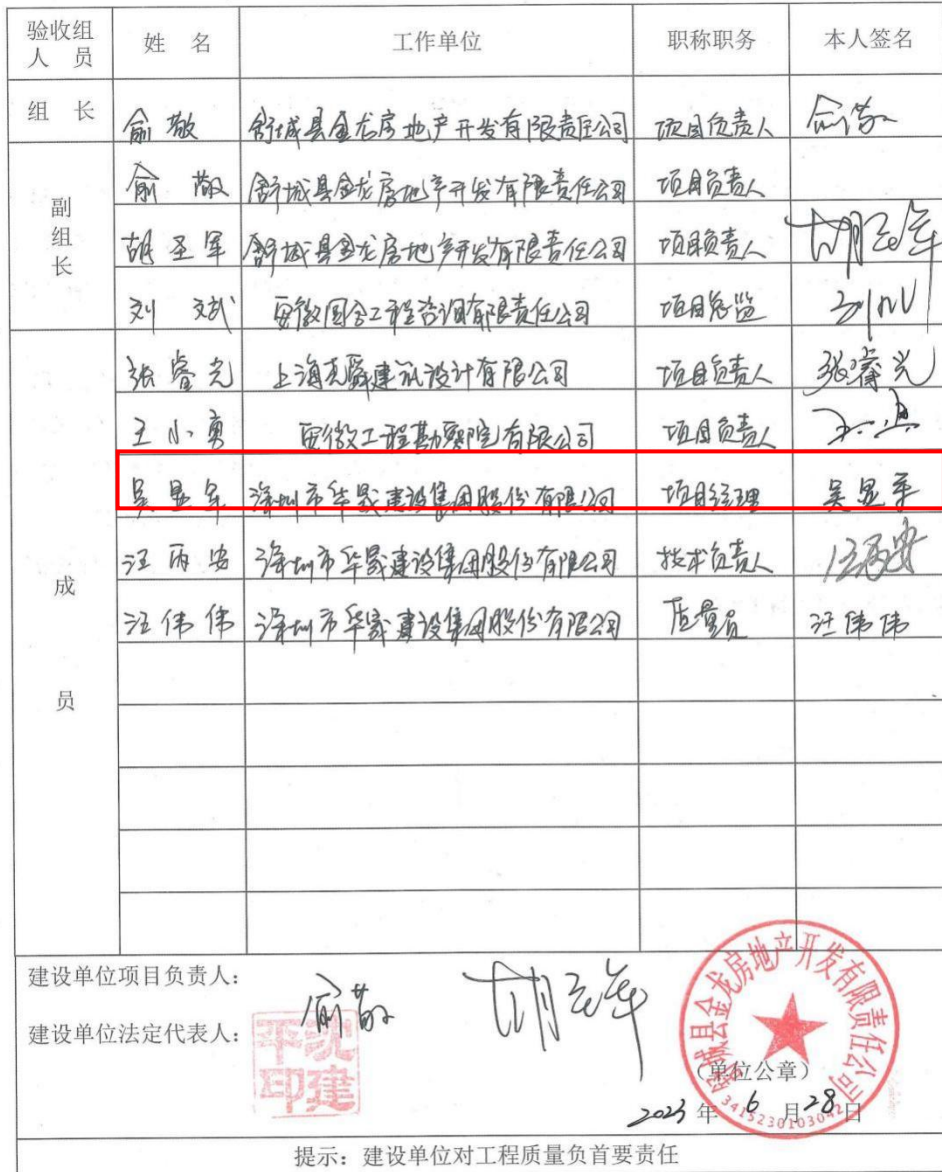 验收组人员 姓 名 工作单位 职称职务 本人签名
组 长 俞敬 舒城县金龙房地产开发有限责任公司 项目负责人 俞敬
副组长 俞敬 舒城县金龙房地产开发有限责任公司 项目负责人
胡圣军 舒城县金龙房地产开发有限责任公司 项目负责人
刘斌 安徽国合工程咨询有限责任公司 项目总监
成员 张睿光 上海尧舜建筑设计有限公司 项目负责人 张睿光
王小勇 安徽工程勘察院有限公司 项目负责人
吴显军 深圳市华晟建设集团股份有限公司 项目经理 吴显军
汪丙安 深圳市华晟建设集团股份有限公司 技术负责人 汪丙安
汪伟伟 深圳市华晟建设集团股份有限公司 质量员 汪伟伟
建设单位项目负责人： 俞敬
建设单位法定代表人：
舒城县金龙房地产开发有限责任公司
（单位公章）
3415230103042
2023 年 6 月 28 日
提示：建设单位对工程质量负首要责任